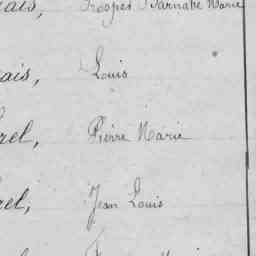 ais, Prosper Barnabé Marie
ais, Louis
rel, Pierre Marie
rel, Jean Louis